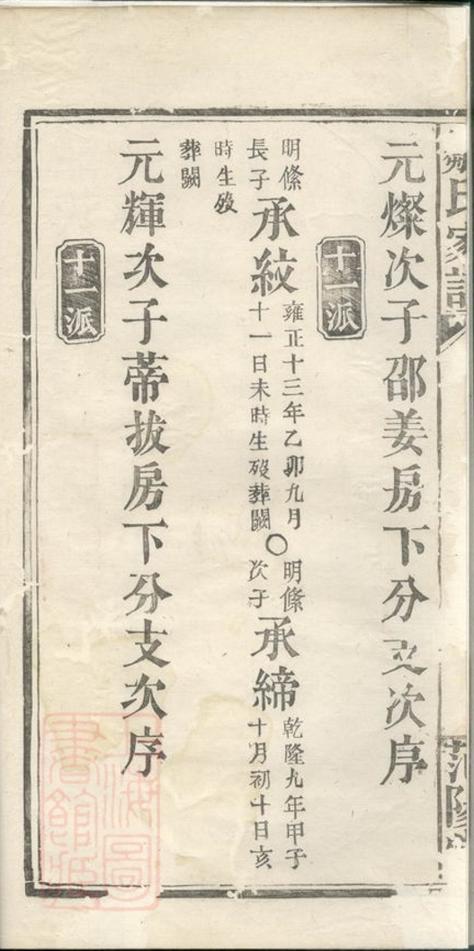 氏家譜
范陽
元燦次子邵姜房下分支次序
十一派
明條長子承紋雍正十三年乙卯九月十一日未時生歿葬闕〇明條次子承締乾隆九年甲子十月初十日亥
時生歿
葬闕
元輝次子蒂拔房下分支次序
十一派
海圖
書館